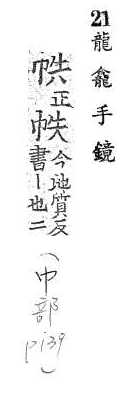 21 龍龕手鏡
正帙今池質反書丨也二
(巾部 p139)